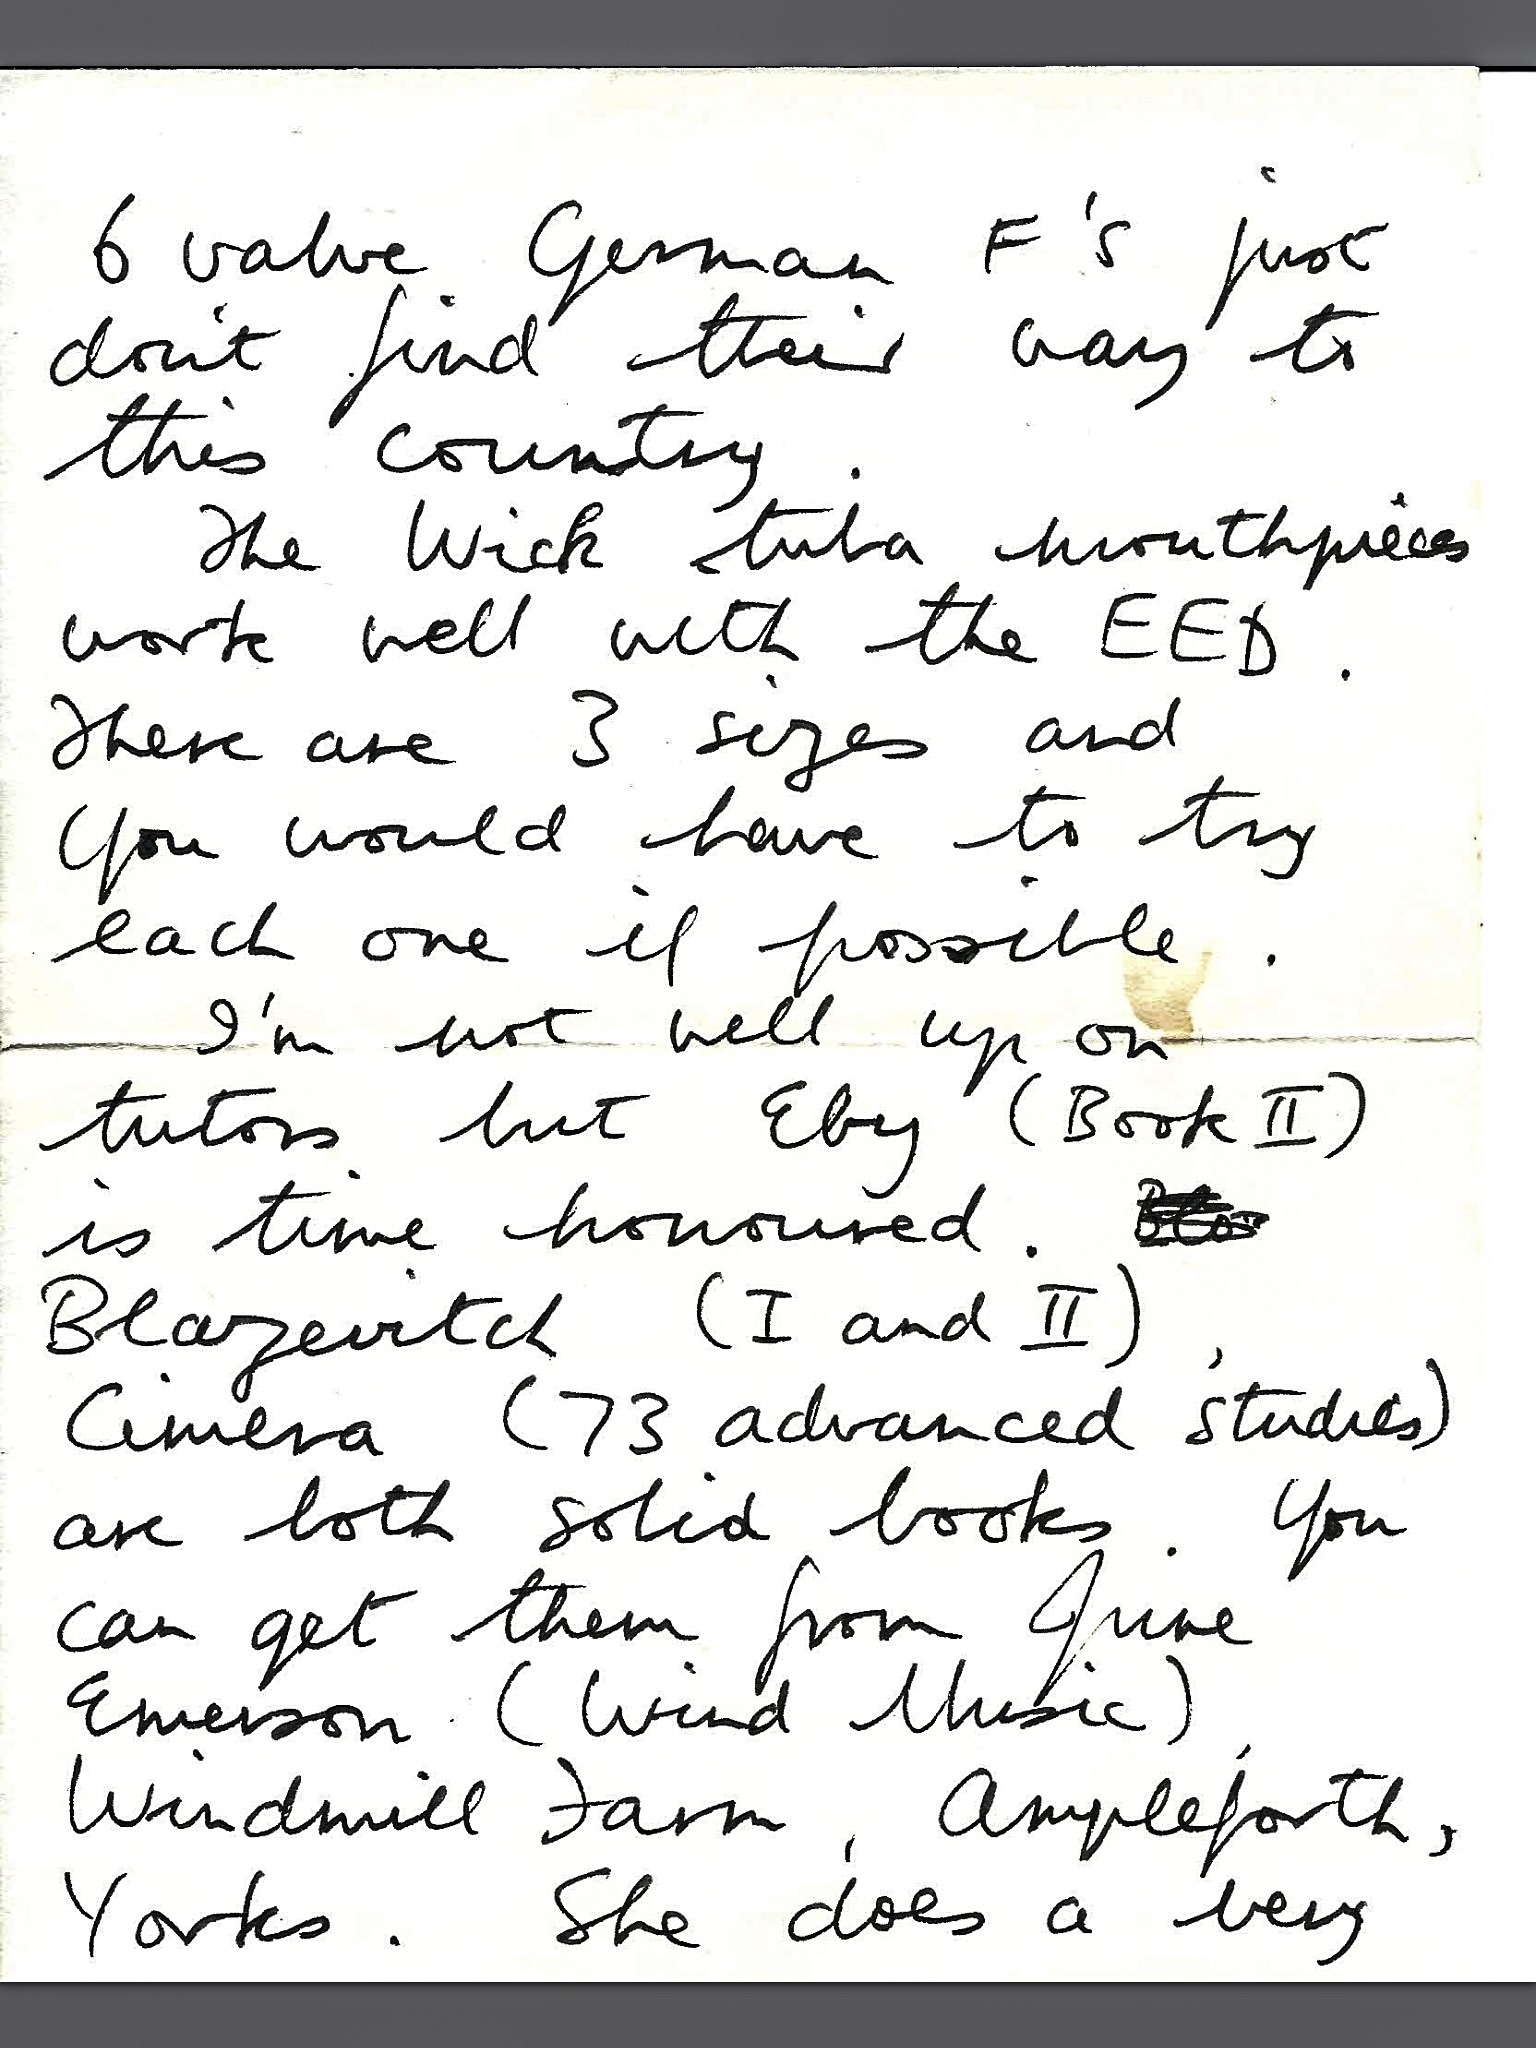 6 valve German F's just
don't find their way to
this country.
The Wick tuba mouthpieces
work well with the EED.
There are 3 sizes and
you would have to try
each one if possible.
I'm not well up on
tutors but Eby (Book II)
is time honoured.
Blazevitch (I and II),
Cimera (73 advanced studies)
are both solid books. You
can get them from June
Emerson (Wind Music),
Windmill Farm, Ampleforth,
Yorks. She does a very